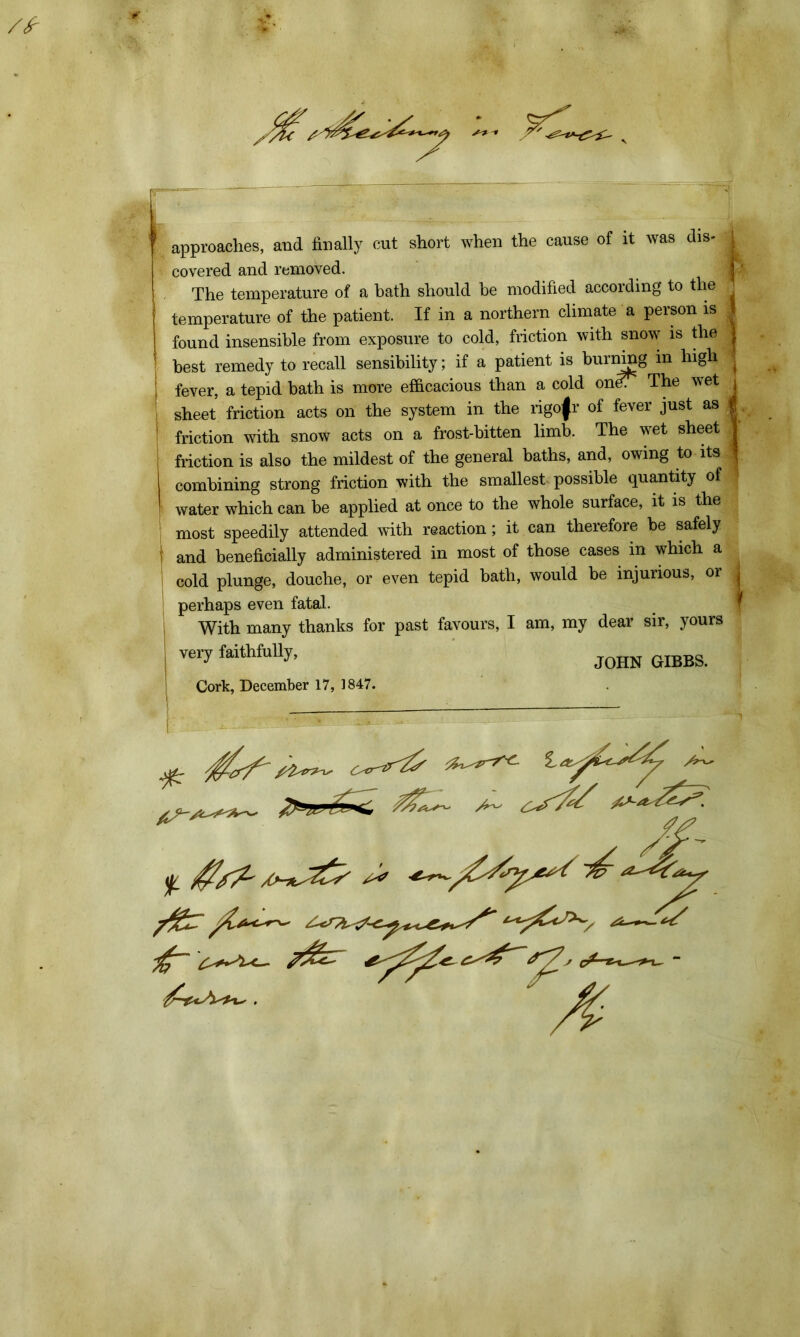 18
The Wet Sheet in Fever.
approaches, and finally cut short when the cause of it was dis-
covered and removed.
The temperature of a bath should be modified according to the
temperature of the patient. If in a northern climate a person is
found insensible from exposure to cold, friction with snow is the
best remedy to recall sensibility; if a patient is burning in high
fever, a tepid bath is more efficacious than a cold one.* The wet
sheet friction acts on the system in the rigor of fever just as
friction with snow acts on a frost-bitten limb. The wet sheet
friction is also the mildest of the general baths, and, owing to its
combining strong friction with the smallest possible quantity of
water which can be applied at once to the whole surface, it is the
most speedily attended with reaction; it can therefore be safely
and beneficially administered in most of those cases in which a
cold plunge, douche, or even tepid bath, would be injurious, or
perhaps even fatal.
With many thanks for past favours, I am, my dear sir, yours
very faithfully,
JOHN GIBBS.
Cork, December 17, 1847.
* Hot iron cools more rapidly in
than in cold water.
* Hot water is employed to allay
the pain consequent upon, and
to cure the effects of, a